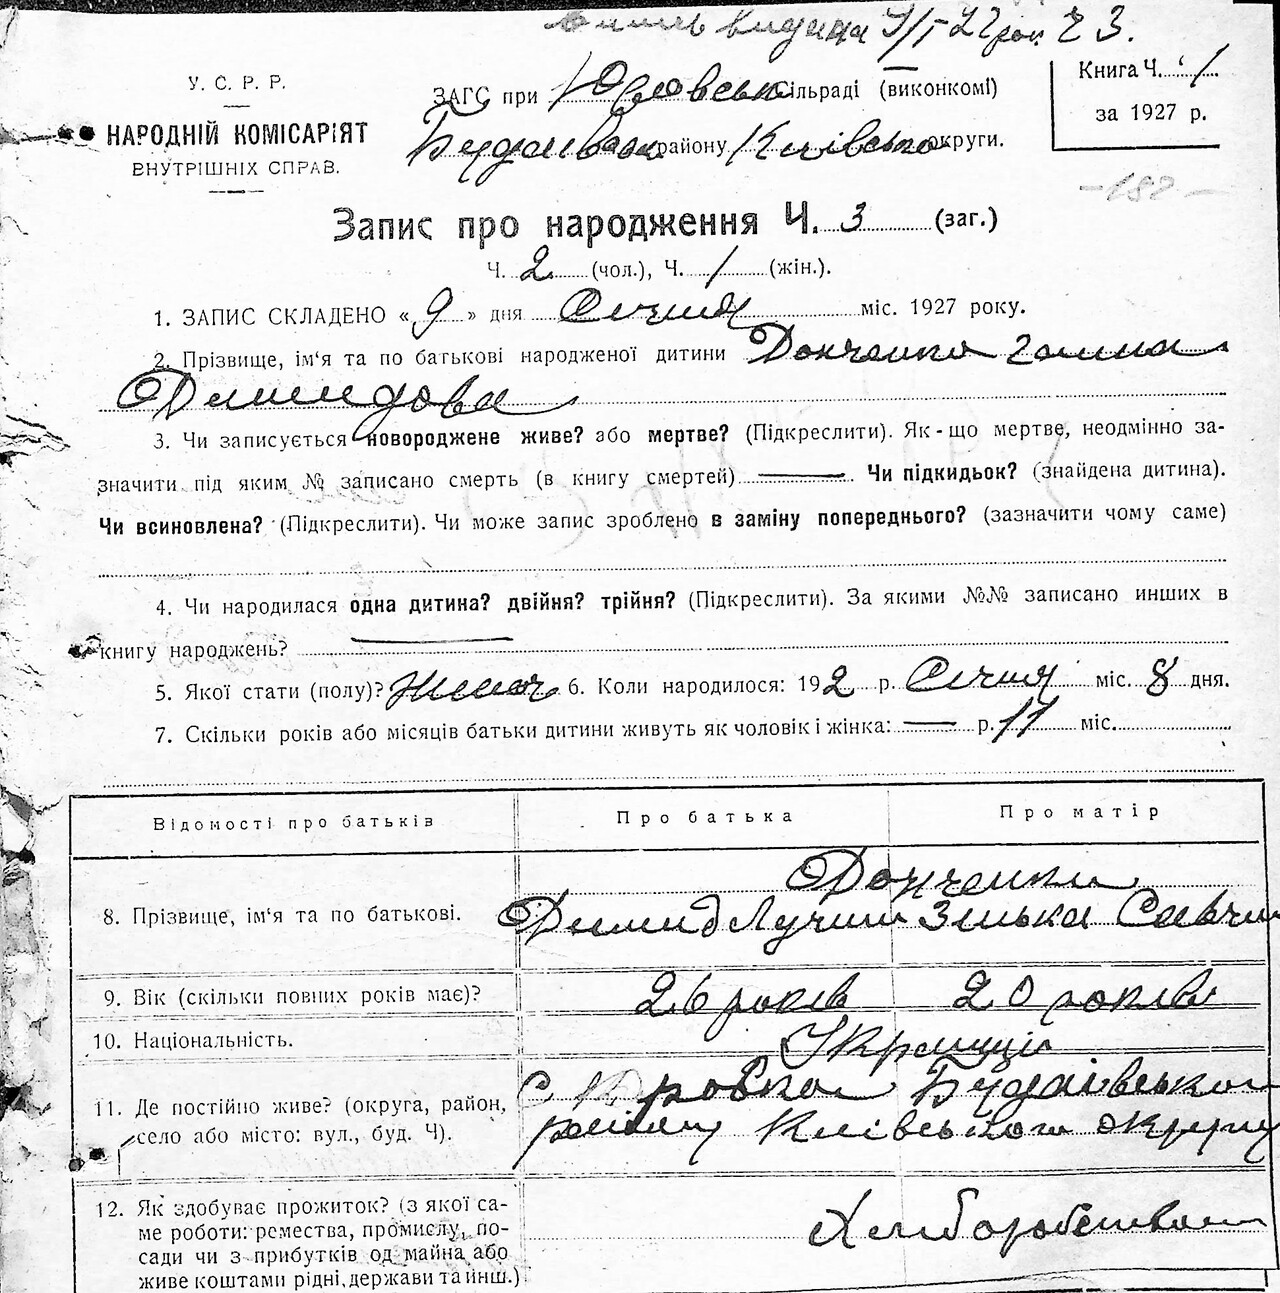 видана 7/I-27 рок Ч 3.
У. С. Р. Р.
НАРОДНІЙ КОМІСАРІЯТ
ВНУТРІШНІХ СПРАВ.
ЗАГС при Юровськ сільраді (виконкомі)
Будаївськ району Київсько округи.
Книга Ч. 1
за 1927 р.
Запис про народження Ч. 3 (заг.)
Ч. 2 (чол.), Ч. 1 (жін.).
1. ЗАПИС СКЛАДЕНО «9» дня Січня міс. 1927 року.
2. Прізвище, ім'я та по батькові народженої дитини Донченко Галина
Демидова
3. Чи записується новороджене живе? або мертве? (Підкреслити). Як-що мертве, неодмінно за-
значити під яким № записано смерть (в книгу смертей) —— Чи підкидьок? (знайдена дитина).
Чи всиновлена? (Підкреслити). Чи може запис зроблено в заміну попереднього? (зазначити чому саме)
4. Чи народилася одна дитина? двійня? трійня? (Підкреслити). За якими №№ записано инших в
книгу народжень?
5. Якої стати (полу)? Жіноч 6. Коли народилося: 192 р. Січня міс. 8 дня.
7. Скільки років або місяців батьки дитини живуть як чоловік і жінка: — р. 11 міс.
Відомості про батьків
Про батька
Про матір
8. Прізвище, ім'я та по батькові.
Донченки
Демид Лучин Зінька Савчи
9. Вік (скільки повних років має)?
26 років
20 років
10. Національність.
Українці
11. Де постійно живе? (округа, район,
село або місто: вул., буд. Ч).
С Юровка Будаївсько
району Київського округу
12. Як здобуває прожиток? (з якої са-
ме роботи: ремества, промислу, по-
сади чи з прибутків од майна або
живе коштами рідні, держави та инш.)
Хліборобством